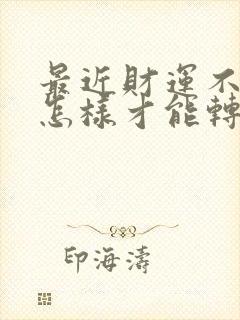 最近財運不
怎樣才能轉
印海濤